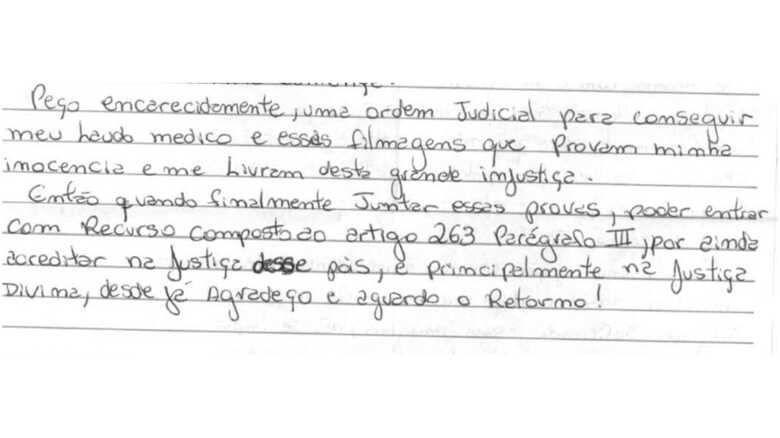 Peço encarecidamente, uma ordem Judicial para conseguir
meu haudo medico e essas filmagens que Provam minha
inocencia e me Livram desta grande injustiça.
Então quando finalmente Juntar essas provas, poder entrar
com Recurso Composto ao artigo 263 Parágrafo III, por ainda
acreditar na Justiça desse pais, e principalmente na Justiça
Divina, desde já Agradeço e aguardo o Retorno!